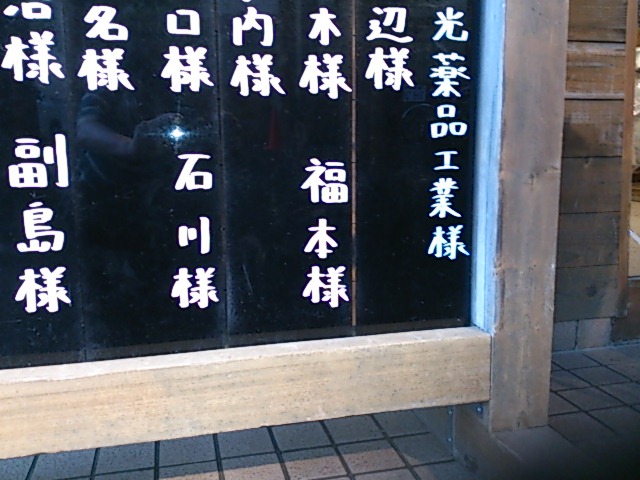 光薬品工業様
辺様
木様
福本様
内様
口様
石川様
名様
様
副島様